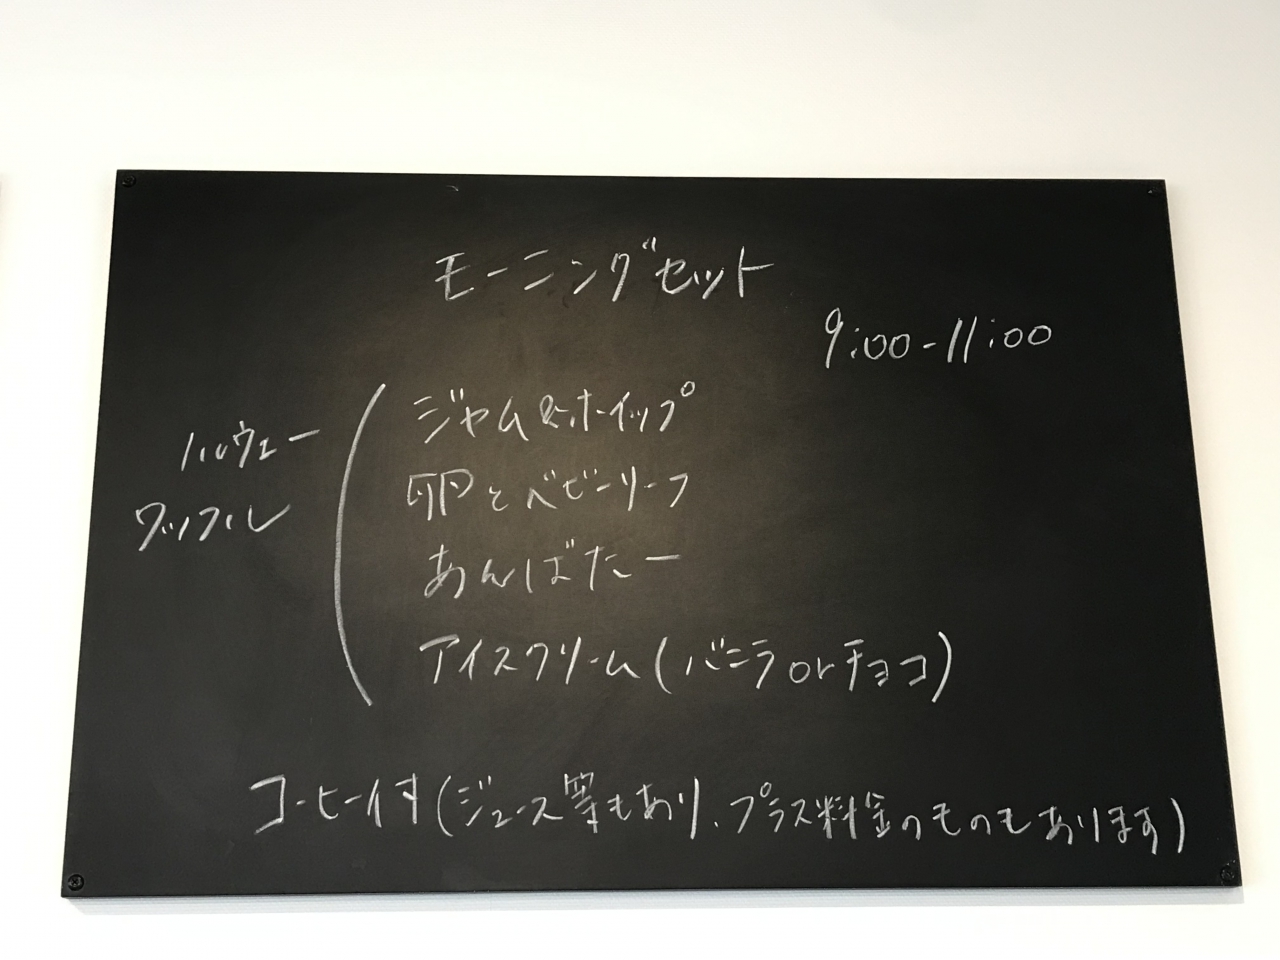 モーニングセット
9:00-11:00
ノルウェー
ワッフル
ジャム&ホイップ
卵とベビーリーフ
あんばたー
アイスクリーム(バニラorチョコ)
コーヒー付(ジュース等もあり、プラス料金のものもあります)